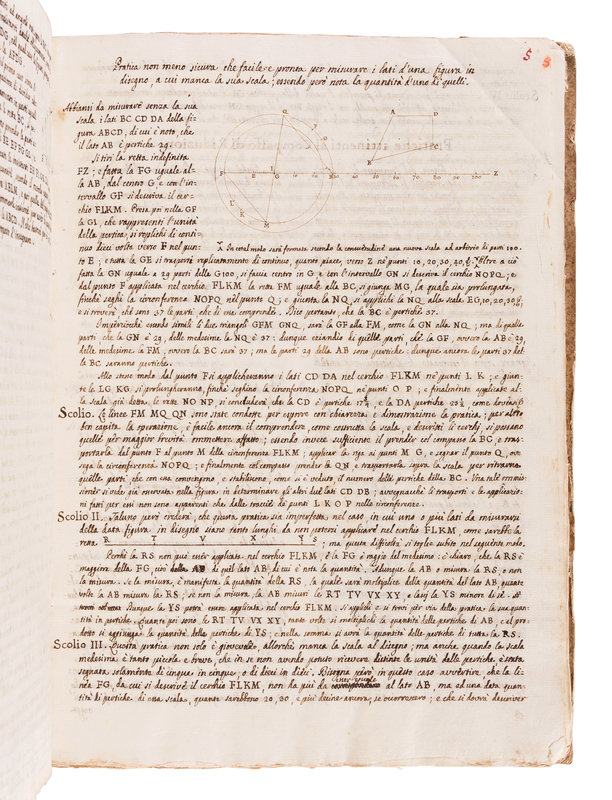 5
Pratica non meno sicura che facile e pronta per misurare i lati d'una figura in
disegno, a cui manca la sua scala; essendo però nota la quantità d'uno di quelli.
Abbiansi da misurare senza la sua
scala i lati BC CD DA della fi-
gura ABCD, di cui è noto, che
il lato AB è pertiche 29.
Si tiri la retta indefinita
FZ; e fatta la FG uguale al-
la AB, dal centro G, e con l'in-
tervallo GF si descriva il cer-
chio FLKM. Presa poi nella GF
la GI, che rappresenti l'unità
della pertica, si replichi di conti-
nuo dieci volte verso F nel pun-
to E; e tutta la GE si trasporti replicatamente di continuo, quanto piace, verso Z ne' punti 10, 20, 30, 40, &c. Oltre a ciò
X In cotal modo sarà formata secondo la consuetudine una nuova scala ad arbitrio di parti 100.
fatta la GN uguale a 29 parti della G100, si faccia centro in G, e con l'intervallo GN si descriva il cerchio NOPQ; e
dal punto F applicata nel cerchio FLKM la retta FM uguale alla BC, si giunga MG, la quale sia prolungata,
finchè seghi la circonferenza NOPQ nel punto Q; e giunta la NQ, si applichi la NQ alla scala EG, 10, 20, 30, &c.
e si troverà che sono 37 le parti, che di essa comprende. Dico pertanto, che la BC è pertiche 37.
Imperciocchè essendo simili i due triangoli GFM GNQ, sarà la GF alla FM, come la GN alla NQ; ma di quelle
parti, che la GN è 29, delle medesime la NQ è 37: dunque eziandio di quelle parti, che la GF, ovvero la AB è 29,
delle medesime la FM, ovvero la BC sarà 37; ma le parti 29 della AB sono pertiche: dunque ancora le parti 37 del-
la BC saranno pertiche.
Allo stesso modo dal punto F si applicheranno i lati CD DA nel cerchio FLKM ne' punti L K; e giun-
te le LG KG si prolungheranno, finchè seghino la circonferenza NOPQ ne' punti O P; e finalmente applicate al-
la scala già detta le rette NO NP, si concluderà che la CD è pertiche 17 e la DA pertiche 23
Scolio. Le linee FM MQ QN sono state condotte per esporre con chiarezza la dimostrazione la pratica; per altro
ben capita la operazione, è facile ancora il comprendere, come costrutta la scala, e descritti li cerchj, si possano
quelle per maggior brevità ommettere affatto; essendo invece sufficiente il prender col compasso la BC, e tras-
portarla dal punto F al punto M della circonferenza FLKM; applicar la riga ai punti M G, e segnar il punto Q, ove
sega la circonferenza NOPQ; e finalmente col compasso prender la QN e trasportarla sopra la scala per ritrovar
quelle parti, che con essa convengono, e stabiliscono, come si è veduto il numero delle pertiche della BC.
si vede già osservato nella figura in determinare gli altri due lati CD DB; avvegnachè li trasporti e le applicazio-
ni fatti per essi non sono apparenti che dalle traccie de' punti L K O P nelle circonferenze.
Scolio II. Taluno però crederà, che questa pratica sia imperfetta nel caso, in cui uno o più lati da misurarsi
della data figura in disegno siano tanto lunghi da non potersi applicare nel cerchio FLKM, come sarebbe la
retta R T V X Y S; ma questa difficoltà si toglie subito nel seguente modo.
Perchè la RS non può esser applicata nel cerchio FLKM, e la FG è raggio del medesimo: è chiaro, che la RS è
maggiore della FG, cioè di quel lato AB, di cui è nota la quantità. Adunque la AB o misura la RS, o non
la misura. Se la misura, è manifesta la quantità della RS, la quale sarà moltiplice della quantità del lato AB, quante
volte la AB misura la RS; se non la misura, la AB misuri le RT TV VX XY, e lasci la YS minore di sè.
Dunque la YS potrà essere applicata nel cerchio FLKM. Si applichi e si trovi per via della pratica la sua quan-
tità in pertiche. Quante poi sono le RT TV VX XY, tante volte si moltiplichi la quantità delle pertiche di AB, e al pro-
dotto si aggiunga la quantità delle pertiche di YS; e nella somma si avrà la quantità delle pertiche di tutta la RS.
Scolio III. Questa pratica non solo è giovevole, allorchè manca la scala al disegno; ma anche quando la scala
medesima è tanto piccola e breve, che in se non avendo potuto ricevere distinte le unità delle pertiche, è stata
segnata solamente di cinque in cinque, o di dieci in dieci. Bisogna però in questo caso avvertire, che la li-
nea FG, da cui si descrive il cerchio FLKM, non ha più da esser uguale al lato AB, ma ad una data quan-
tità di pertiche di essa scala, quante sarebbono 20, 30, e più decine ancora, se occorressero; e che si dovrà descriver